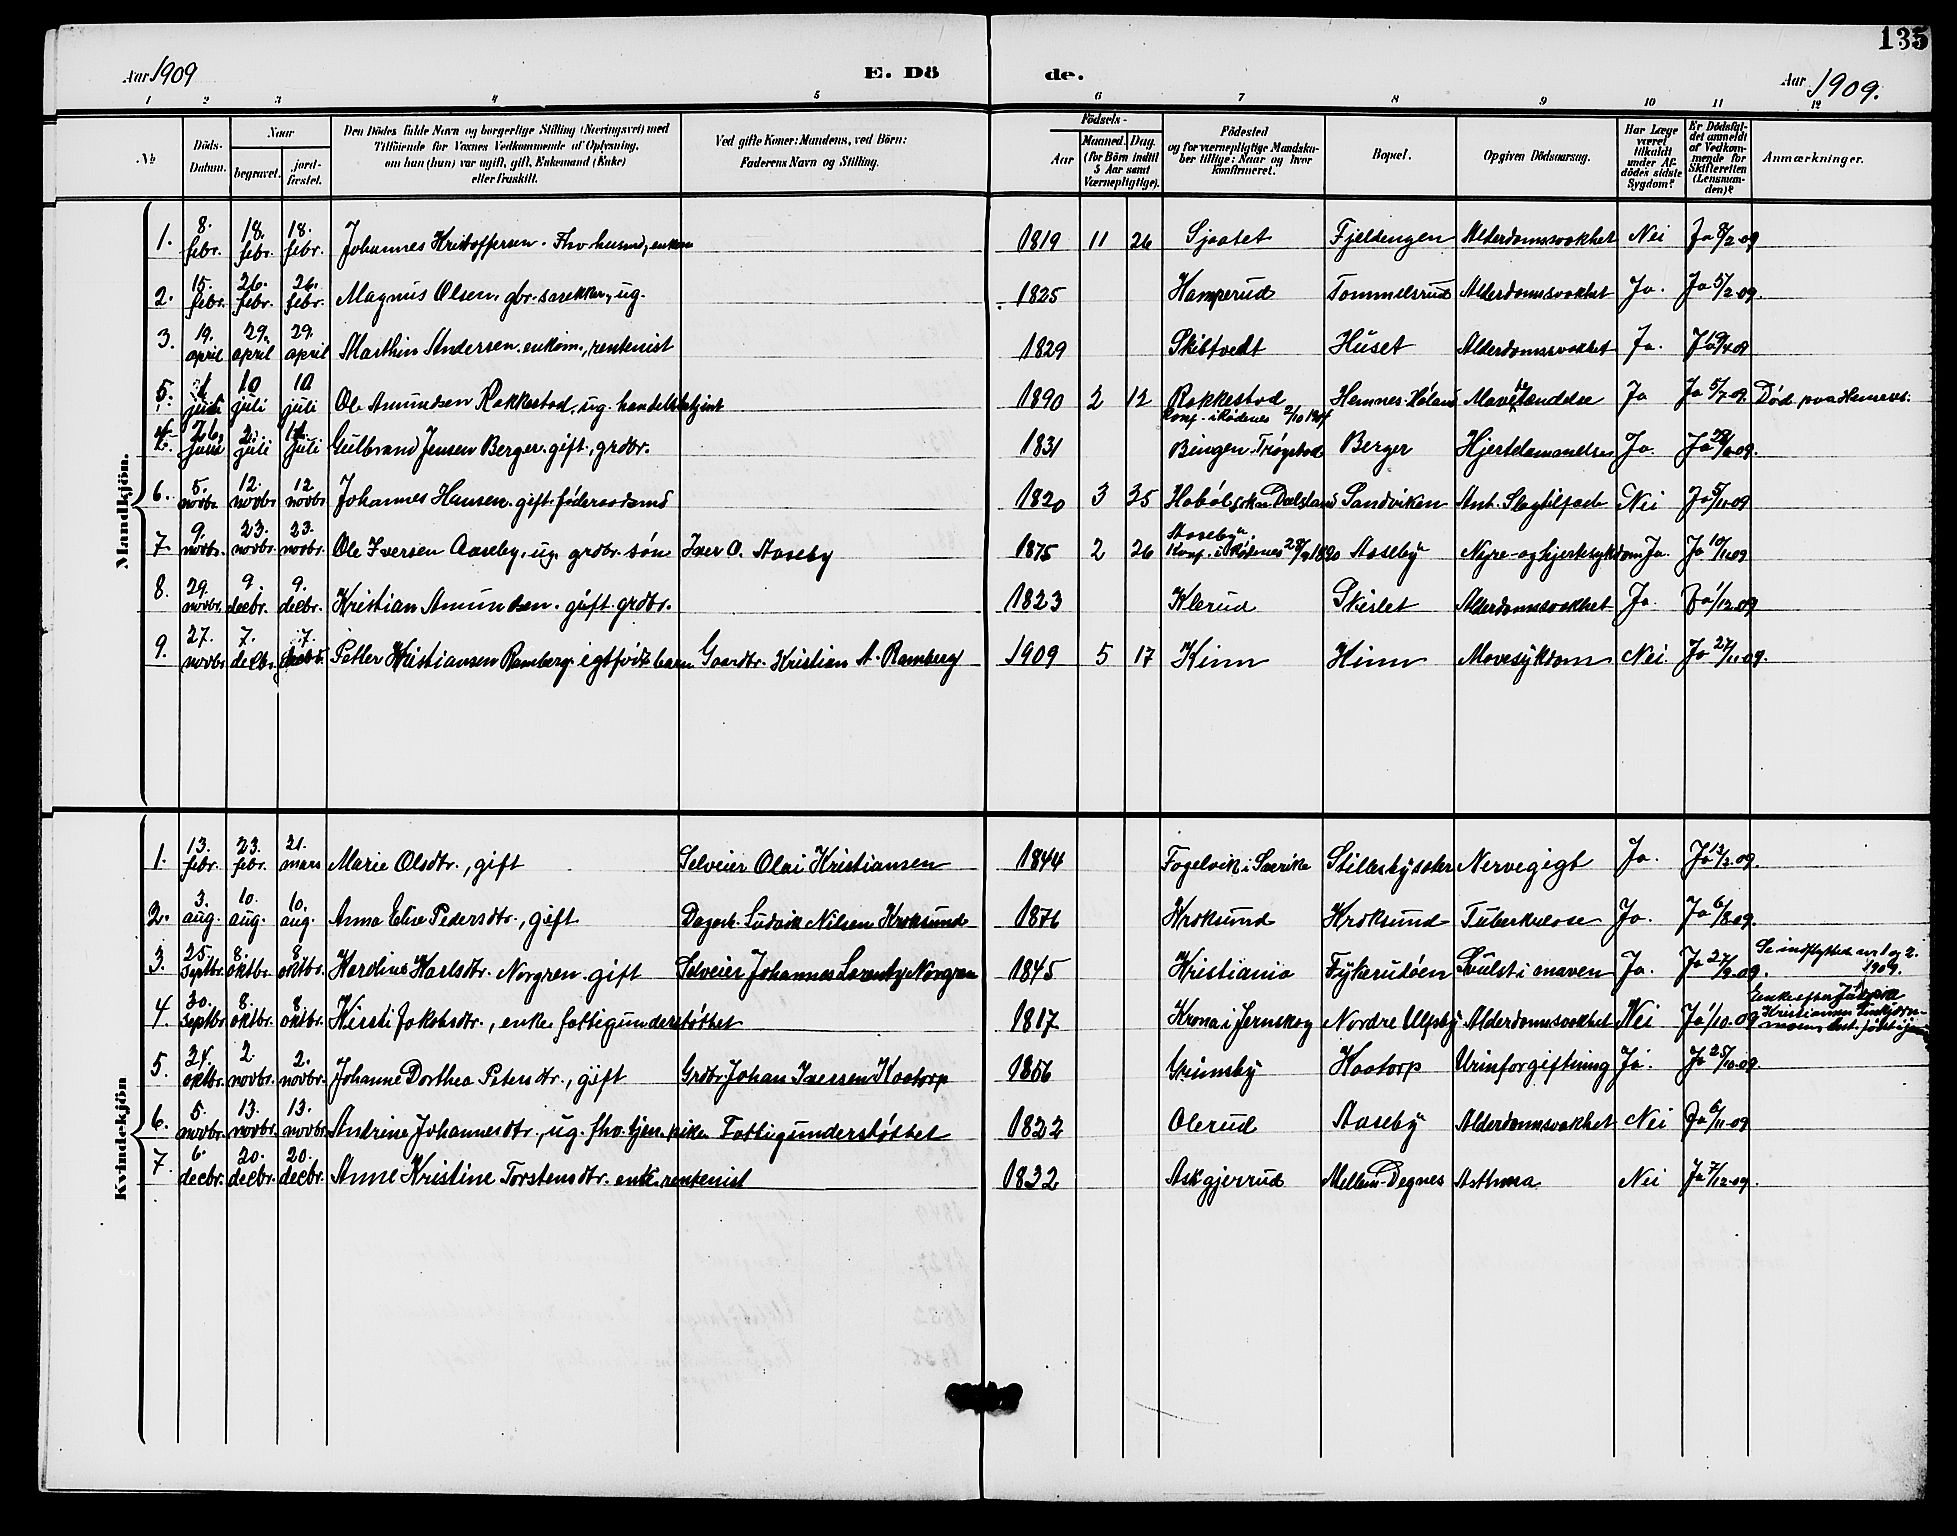 135
Aar 1909 E. Dö de. Aar 1909.
1 2 3 4 5 6 7 8 9 10 11 12
No Döds-Datum. Naar begravet. jord-fæstet. Den Dödes fulde Navn og borgerlige Stilling (Næringsvei) med Tilföiende for Voxnes Vedkommende af Oplysning, om hun (hun) var ugift, gift, Enkemand (Enke) eller fraskilt. Ved gifte Koner: Mandens, ved Börn: Faderens Navn og Stilling. Födsels- Aar Maaned. Dag. (for Börn indtil 5 Aar samt Værnepligtige). Födested og for værnepligtige Mandskaber tillige: Naar og hvor konfirmeret. Bopæl. Opgiven Dödsaarsag. Har Læge været tilkaldt under Afdödes sidste Sygdom? Er Dödsfaldet anmeldt af Vedkommende for Skifteretten (Lensmanden)? Anmærkninger.
Mandkjön.
1. 8. febr. 18. febr. 18. febr. Johannes Kristoffersen. Fhv. husmd, enkem 1819 11 26 Sjaatet Fjeldengen Alderdomssvakhet Nei Ja 8/2 09
2. 15. febr. 26. febr. 26. febr. Magnus Olsen, gbr. , ug. 1825 Hamperud Tommelsrud Alderdomssvakhet Ja. Ja 5/2 09.
3. 19. april 29. april 29. april Marthin Andersen. enkem., rentenist 1829 Skibtvedt Huset Alderdomssvakhet Ja. Ja 19/4 09
5. juli 10 juli 10 juli Ole Amundsen Rakkestad, ug. handelsbetjent 1890 2 12 Rakkestad Hemnes. Høland Ja Ja 5/7 09. Død paa Hemnes.
Konf. i Rødenes 2/10 1904
4. 26. juni 2. juli juli Gulbrand Jensen Berger. gift., grdbr. 1831 Bingen. Trøgstad Berger Hjertelammelse Ja. Ja 09.
6. 5. novbr. 12. novbr. 12 novbr. Johannes Hansen. gift. føderaadsmd 1820 3 25 Habøl Sandviken Ant. Slagtilfælde Nei Ja 5/11 09
7. 9. novbr. 23. novbr. 23. novbr. Ole Iversen Aaseby. ug. grdbr. søn Iver O. Aaseby 1875 2 26 Aaseby. Konf. i Rødenes 28/9 1890 Aaseby Nyre- og hjertesykdom Ja. Ja 10/11 09
8. 29. novbr. 9. decbr. 9. decbr. Kristian Amundsen. gift. grdbr. 1823 Klerud Skislet Alderdomssvakhet Ja. Ja 1/12 09
9. 27. novbr. 7. decbr. 7. Petter Kristiansen Ramberg. egtefødt barn Gaardbr. Kristian A. Ramberg 1909 5 17 Kinn Kinn Mavesykdom Nei Ja 27/11 09.
Kvindekjön
1. 13. febr. 23. febr. 21. mars Marie Olsdtr., gift Selveier Olai Kristiansen 1844 Fogelvik i Sverike Stillesbysæter Nervegigt Ja. Ja 13/2 09.
2. 3. aug. 10. aug. 10. aug. Anna Elise Pedersdtr., gift Dagarb. Ludvik Nilsen Kroksund 1876 Kroksund Kroksund Tuberkulose Ja. Ja 6/8 09.
3. 25. septbr. 8. oktbr. 8. oktbr. Karoline Karlsdtr. Norgren. gift Selveier Johannes Lorentze Norgren 1845 Kristiania Fykerudøen Svulst i maven Ja. Ja 27/9 09. Se indflyttede nr. 1 og 2. 1909.
4. 30. septbr. 8. oktbr. 8. oktbr. Kirsti Jakobsdtr., enke. fattigunderstøttet 1817 Krona i Jernskog Nordre Ulfsby Alderdomssvakhet Nei Ja 1/10. 09 Enke efter Kristiansen
5. 24. oktbr. 2. novbr. 2. novbr. Johanne Dorthea Petersdtr., gift Grdbr. Johan Iversen Kaatorp 1856 Grimsby Kaatorp Urinforgiftning Ja. Ja 25/10 09.
6. 5. novbr. 13. novbr. 13. novbr. Andrine Johannesdtr., ug. fhv. tjen. pike. Fattigunderstøttet 1822 Olerud Aaseby Alderdomssvakhet Nei Ja 6/11 09
7. 6. decbr. 20. decbr. 20. decbr. Anne Kristine Torstensdtr. enke. rentenist 1832 Askgjerrud Mellem-Degnes Asthma Nei Ja 7/12 09.